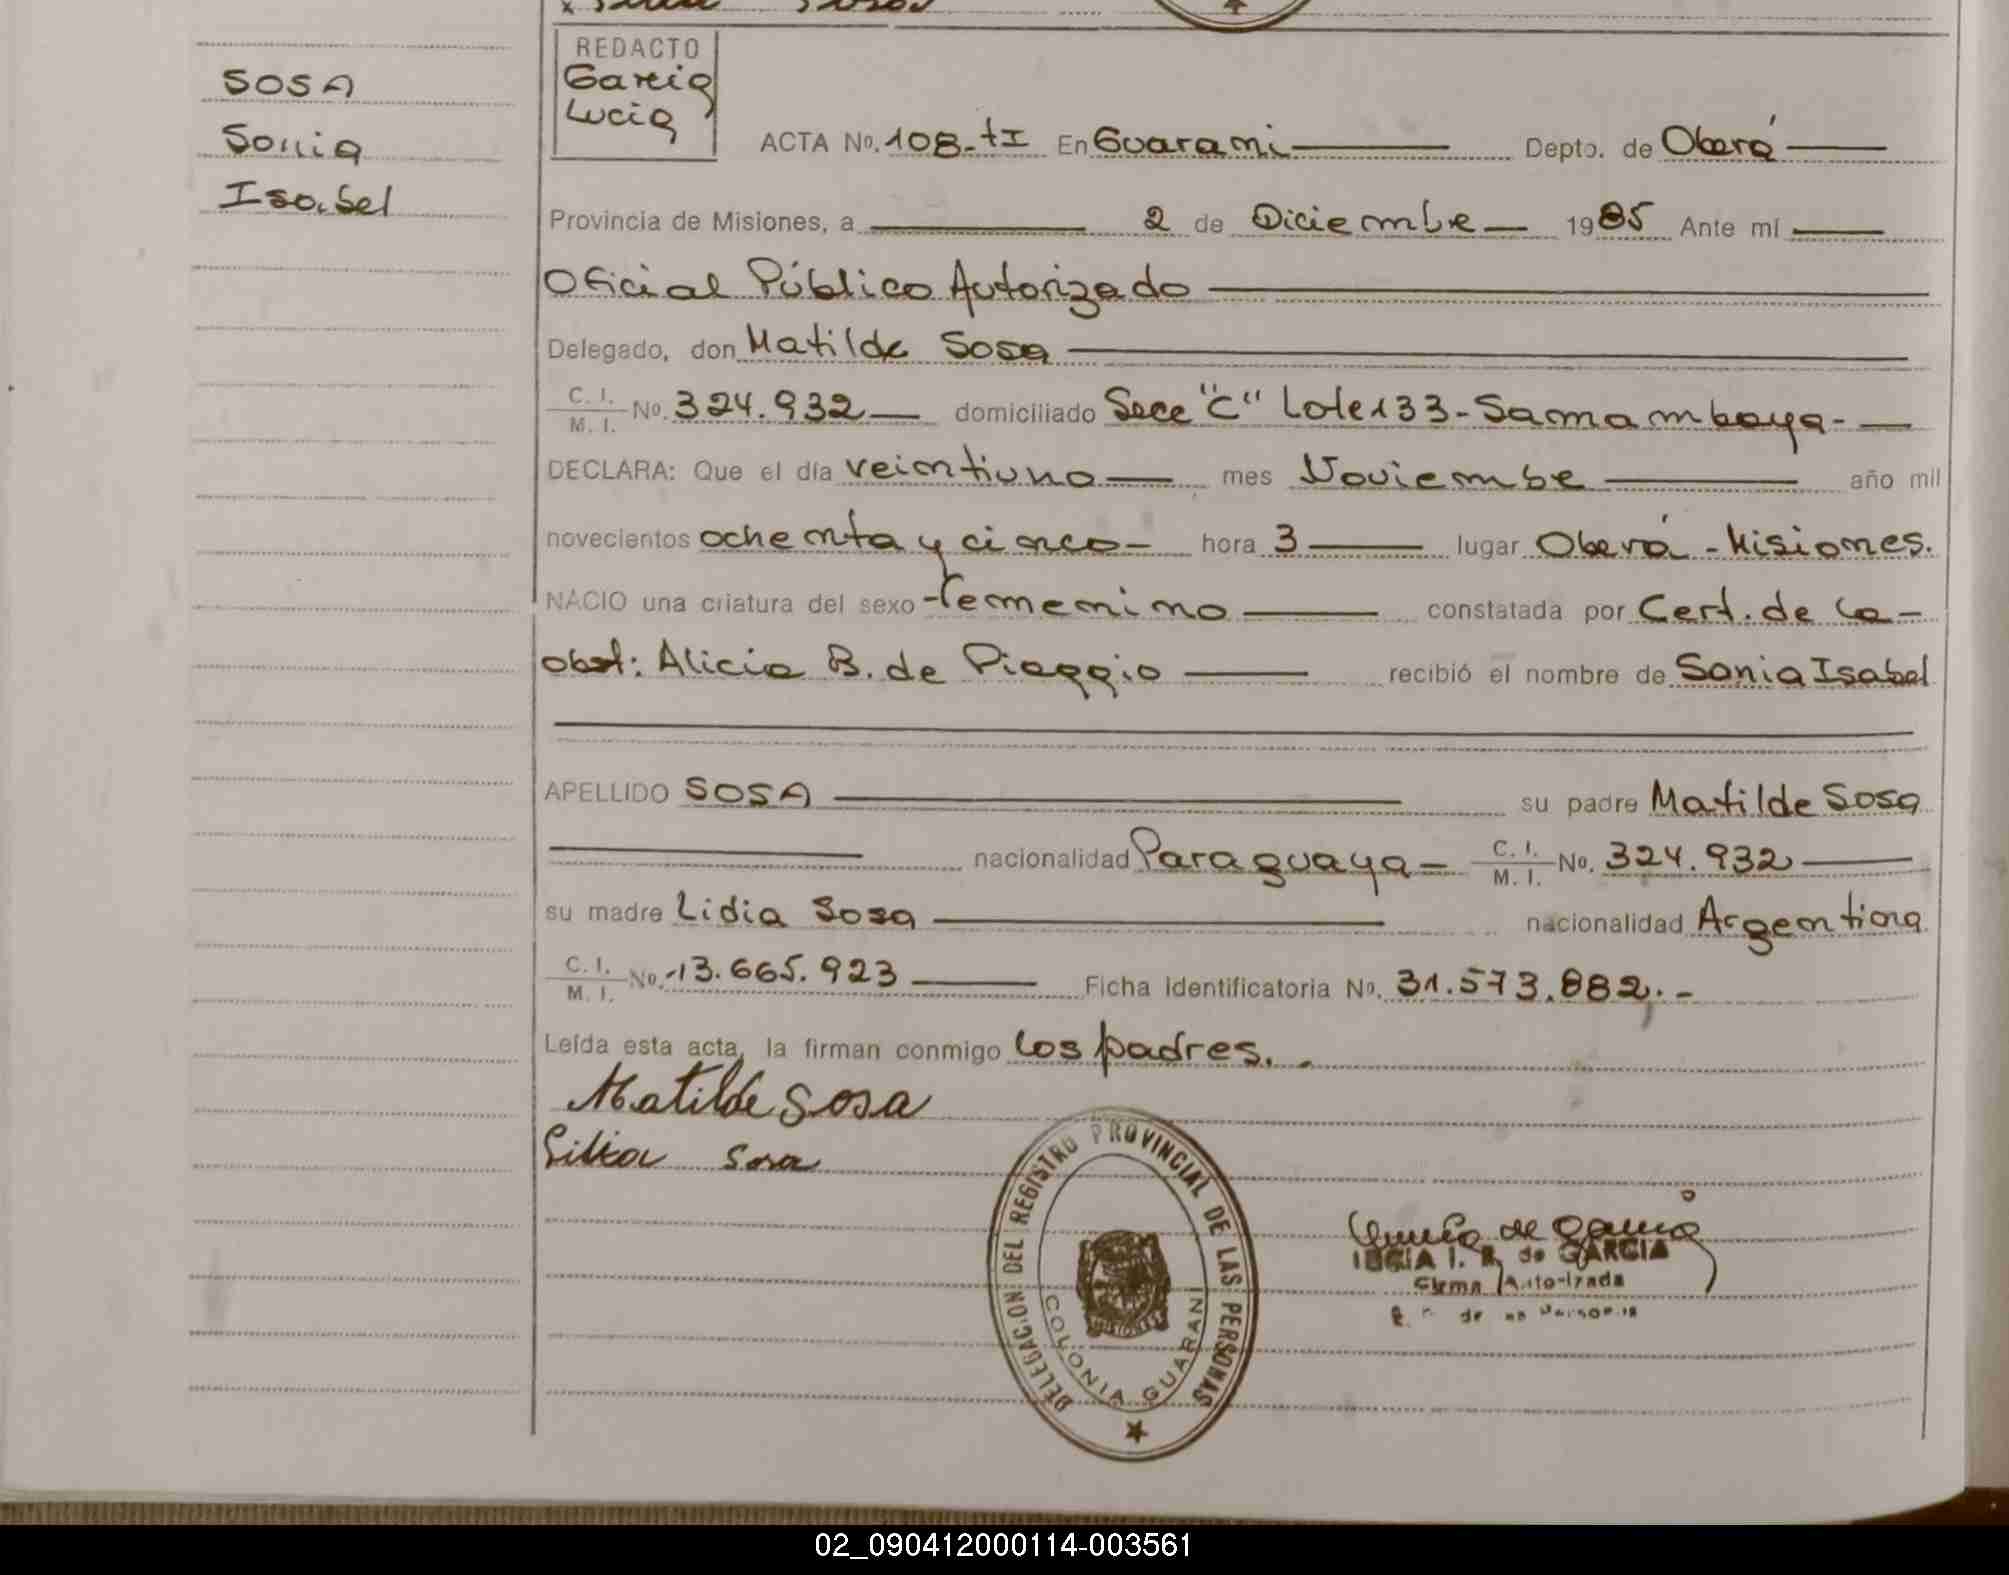 SOSA
Sonia
Isabel
REDACTO
Garcia
Lucia
ACTA No. 108-tI En Guarani Depto. de Oberá
Provincia de Misiones, a 2 de Diciembre 1985 Ante mí
Oficial Público Autorizado
Delegado, don Matilde Sosa
C. I. / M. I. No. 324.932 domiciliado Secc "C" Lote 133 - Samambaya -
DECLARA: Que el día veintiuno mes Noviembre año mil
novecientos ochenta y cinco - hora 3 lugar Oberá - Misiones.
NACIO una criatura del sexo Femenino constatada por Cert. de la -
obst: Alicia B. de Piaggio recibió el nombre de Sonia Isabel
APELLIDO SOSA su padre Matilde Sosa
nacionalidad Paraguaya - C. I. / M. I. No. 324.932
su madre Lidia Sosa nacionalidad Argentina
C. I. / M. I. No. 13.665.923 Ficha identificatoria No. 31.573.882.-
Leída esta acta, la firman conmigo los padres. -
Matilde Sosa
Sosa
DELEGACION DEL REGISTRO PROVINCIAL DE LAS PERSONAS
COLONIA GUARANI
MISIONES
de Garcia
LUCIA I. R. de GARCIA
Firma Autorizada
02_090412000114-003561